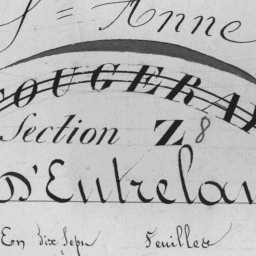 Ste Anne
OUGERA
Section Z8
D'Entrela
En dix Sept Feuilles